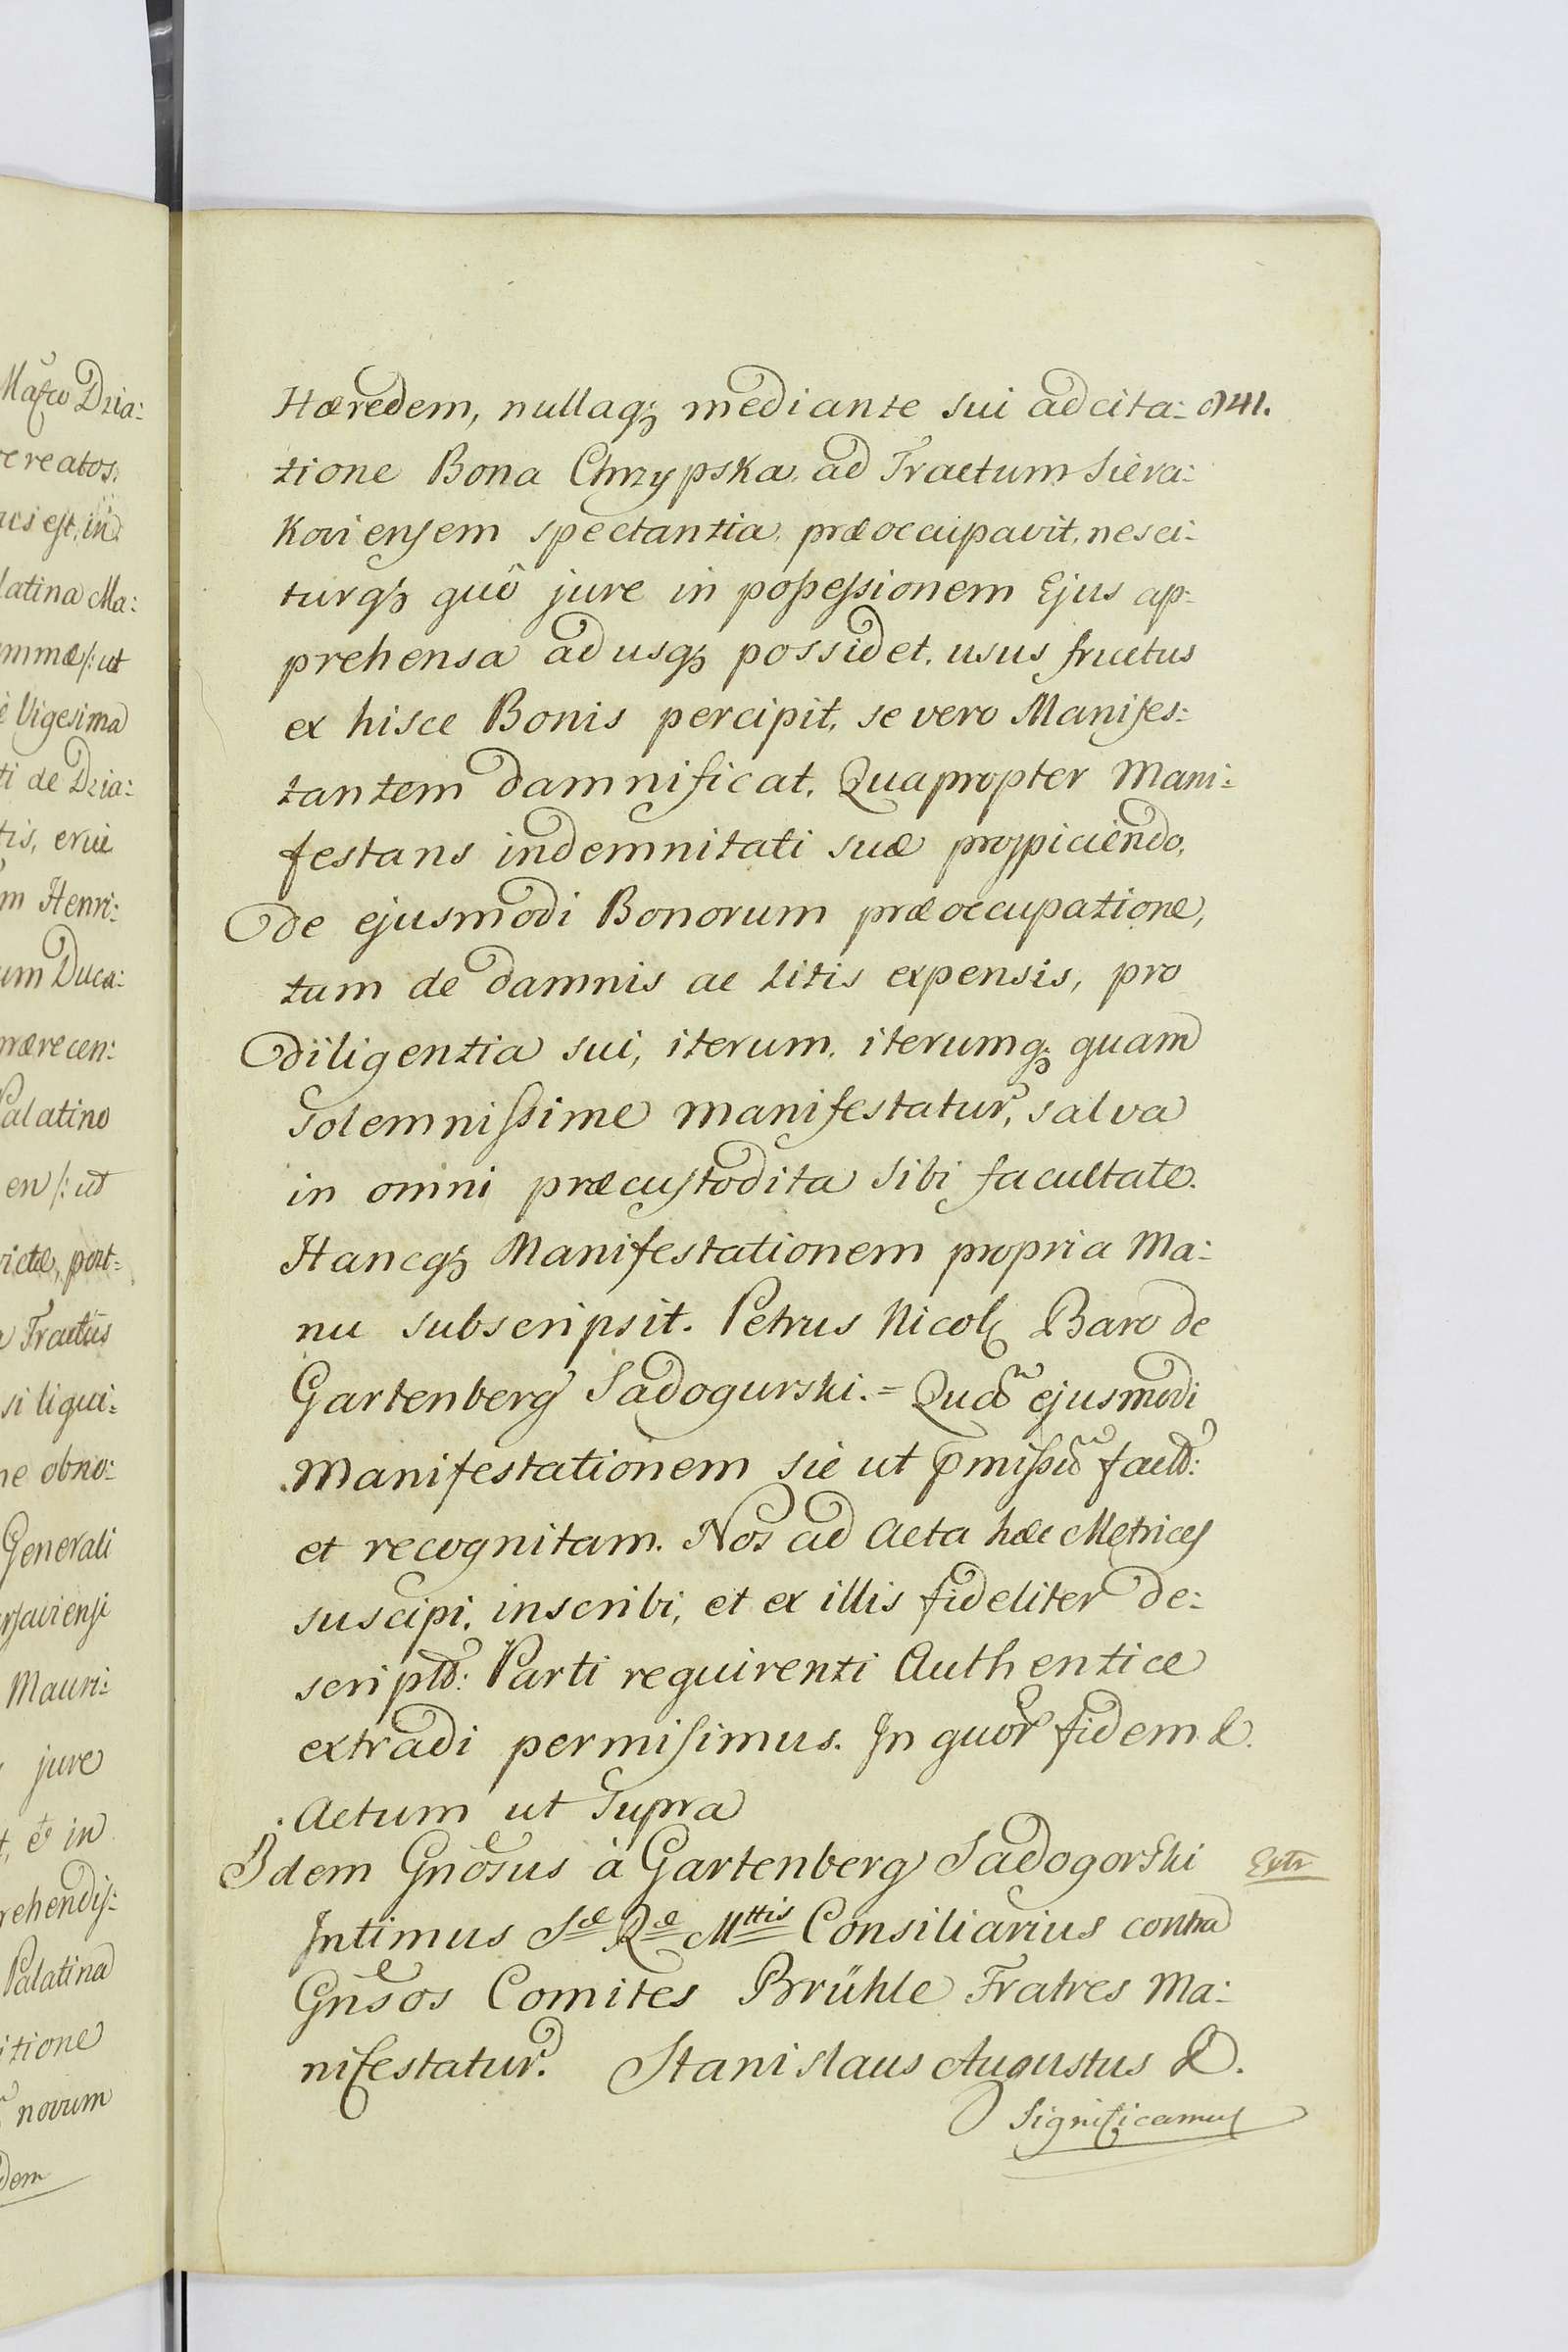 Mafco Dzia:
reatos.
est, in
latina Ma:
mmæ/: ut
Vigesima
ti de Dzia:
tis, erui
m Henri:
um Duca:
mærecen:
Palatino
en/: ut
victæ, port-
Tractus
si liqui:
ne obno:
Generali
rsaviensi
Mauri:
jure
t, & in
rehendis:
Palatina
itione
novum
dem
Hæredem, nullaqȝ mediante sui adcita: 941.
tione Bona Chrzypska. ad Tractum Siera:
Koviensem spectantia. præoccupavit. nesci-
turqȝ quô jure in possessionem Ejus ap:
prehensa ad usqȝ possidet. usus fructus
ex hisce Bonis percipit, se vero Manifes:
tantem damnificat. Quapropter Mani:
festans indemnitati suæ prospiciendo,
de ejusmodi Bonorum præoccupatione,
tum de damnis ac litis expensis, pro
diligentia sui, iterum, iterumqȝ quam
solemnissime manifestatur, salva
in omni præcustodita sibi facultate.
Hancqȝ Manifestationem propria Ma:
nu subscripsit. Petrus Nicol Baro de
Gartenberg Sadogurski. = Quã ejusmodi
Manifestationem sic ut p̄missũ factã:
et recognitam. Nos ad Acta hæc Metrices
suscipi, inscribi, et ex illis fideliter de:
scriptã: Parti requirenti Authentice
extradi permisimus. In quor fidem &.
Actum ut Supra
Idem Gnõsus à Gartenberg Sadogorski Extr
Intimus Sæ Ræ Mttis Consiliarius contra
Gnõsos Comites Brühle Fratres Ma:
nifestatur. Stanislaus Augustus &.
Significamus